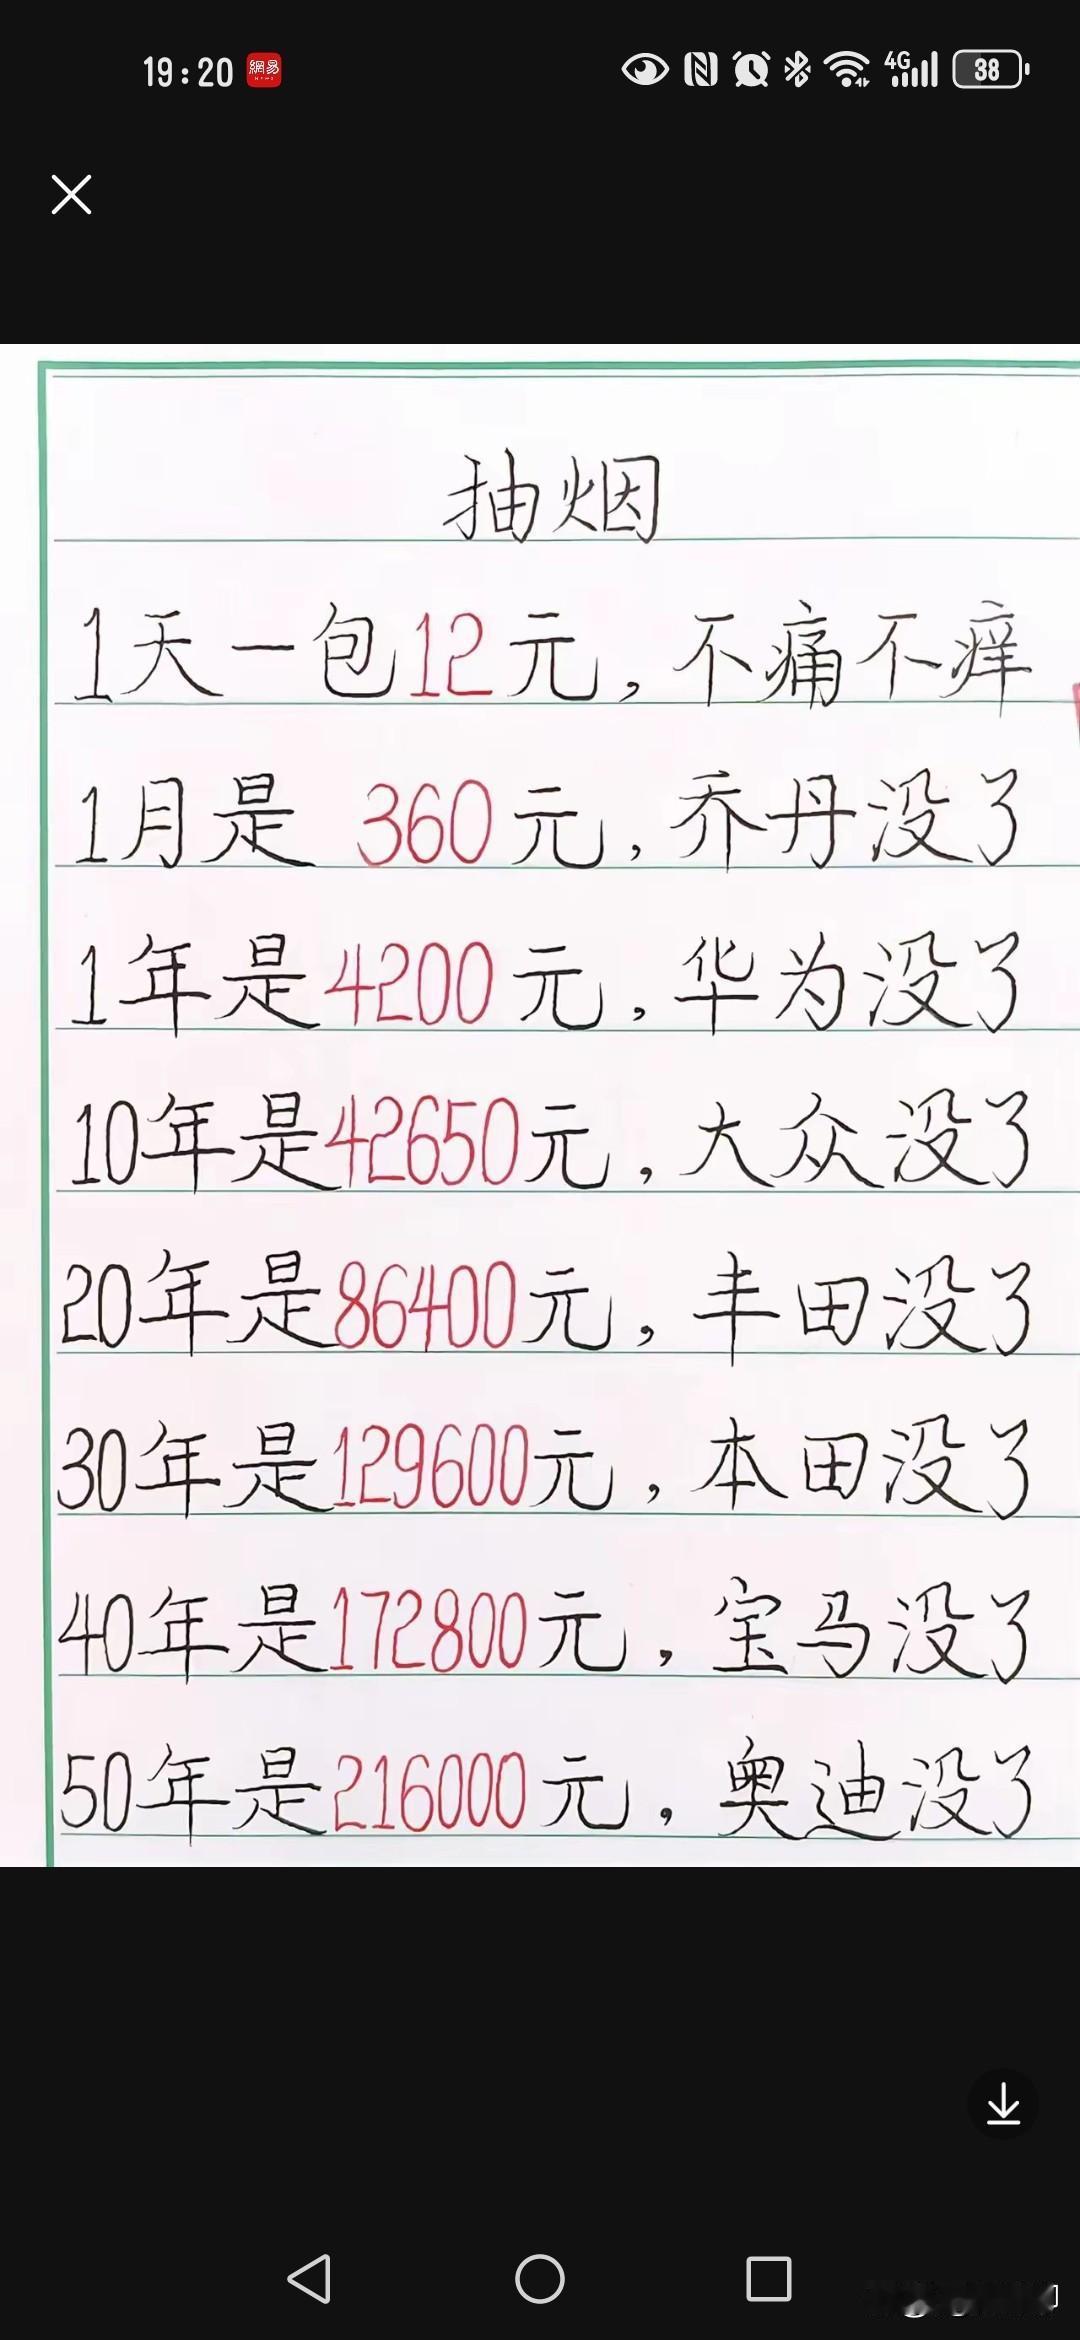 19:20
網易
NEWS
4G
38
抽烟
1天一包12元，不痛不痒
1月是 360元，乔丹没了
1年是4200元，华为没了
10年是42650元，大众没了
20年是86400元，丰田没了
30年是129600元，本田没了
40年是172800元，宝马没了
50年是216000元，奥迪没了